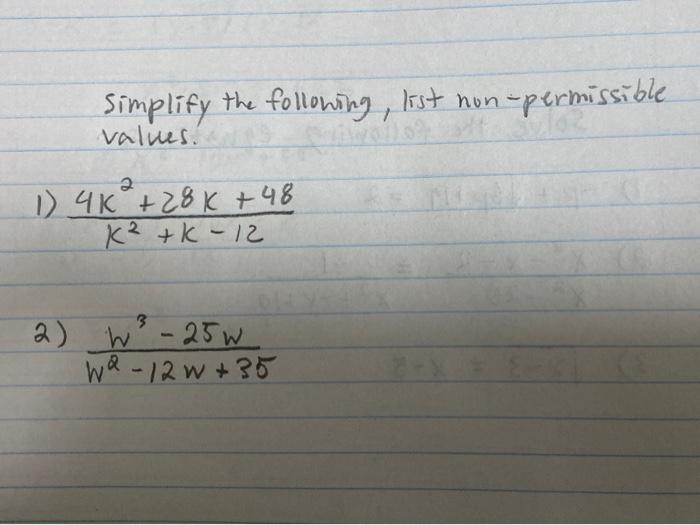 Simplify the following, list non-permissible
values.
1) 4k² + 28k + 48
k² + k - 12
2) w³ - 25w
w² - 12w + 35